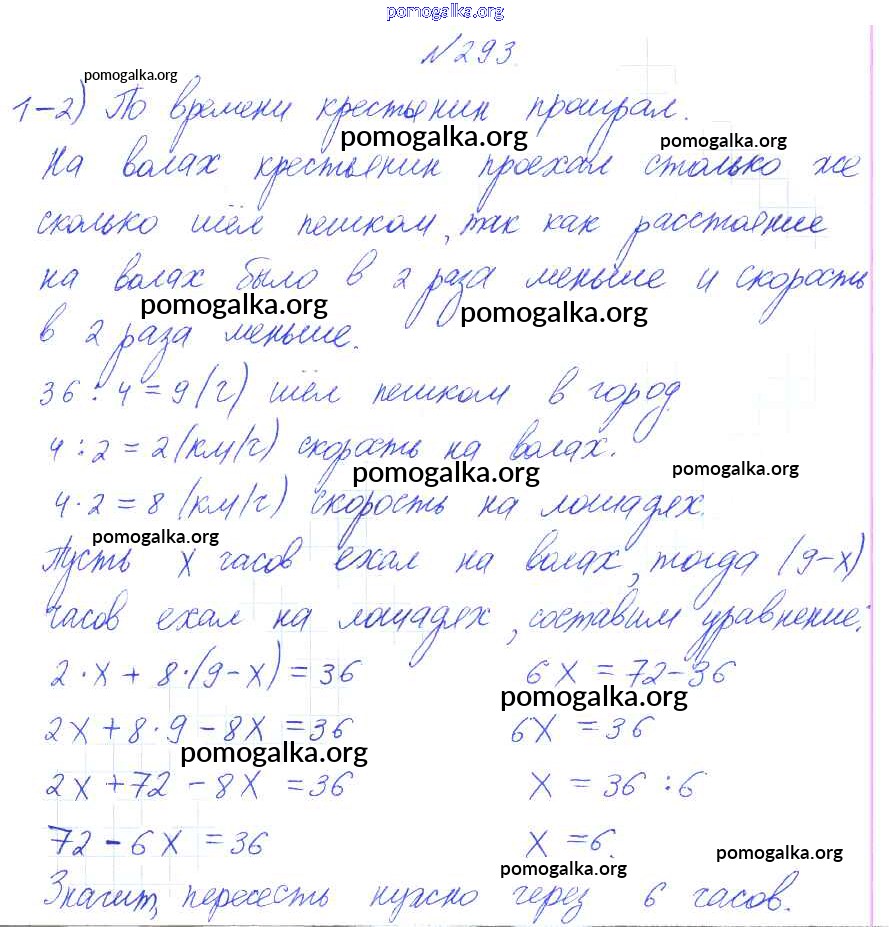 pomogalka.org
№293.
pomogalka.org
1-2) По времени крестьянин проиграл.
pomogalka.org pomogalka.org
На волах крестьянин проехал столько же
сколько шёл пешком, так как расстояние
на волах было в 2 раза меньше и скорость
pomogalka.org pomogalka.org
в 2 раза меньше.
36 : 4 = 9 (ч) шёл пешком в город.
4 : 2 = 2 (км/ч) скорость на волах.
pomogalka.org pomogalka.org
4 · 2 = 8 (км/ч) скорость на лошадях.
pomogalka.org
Пусть x часов ехал на волах, тогда (9-x)
часов ехал на лошадях, составим уравнение:
2 · x + 8 · (9 - x) = 36 6x = 72 - 36
pomogalka.org
2x + 8 · 9 - 8x = 36 6x = 36
pomogalka.org
2x + 72 - 8x = 36 x = 36 : 6
72 - 6x = 36 x = 6.
pomogalka.org pomogalka.org
Значит, пересесть нужно через 6 часов.